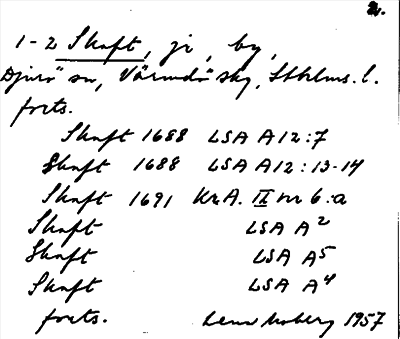 2.
1-2 Skaft, ji, by,
Djurö sn, Värmdö skg, Sthlms. l.
forts.
Skaft 1688 LSA A12:7
Skaft 1688 LSA A12:13-14
Skaft 1691 Kr.A. IX nr 6:a
Skaft LSA A2
Skaft LSA A5
Skaft LSA A4
forts. Lena Moberg 1957